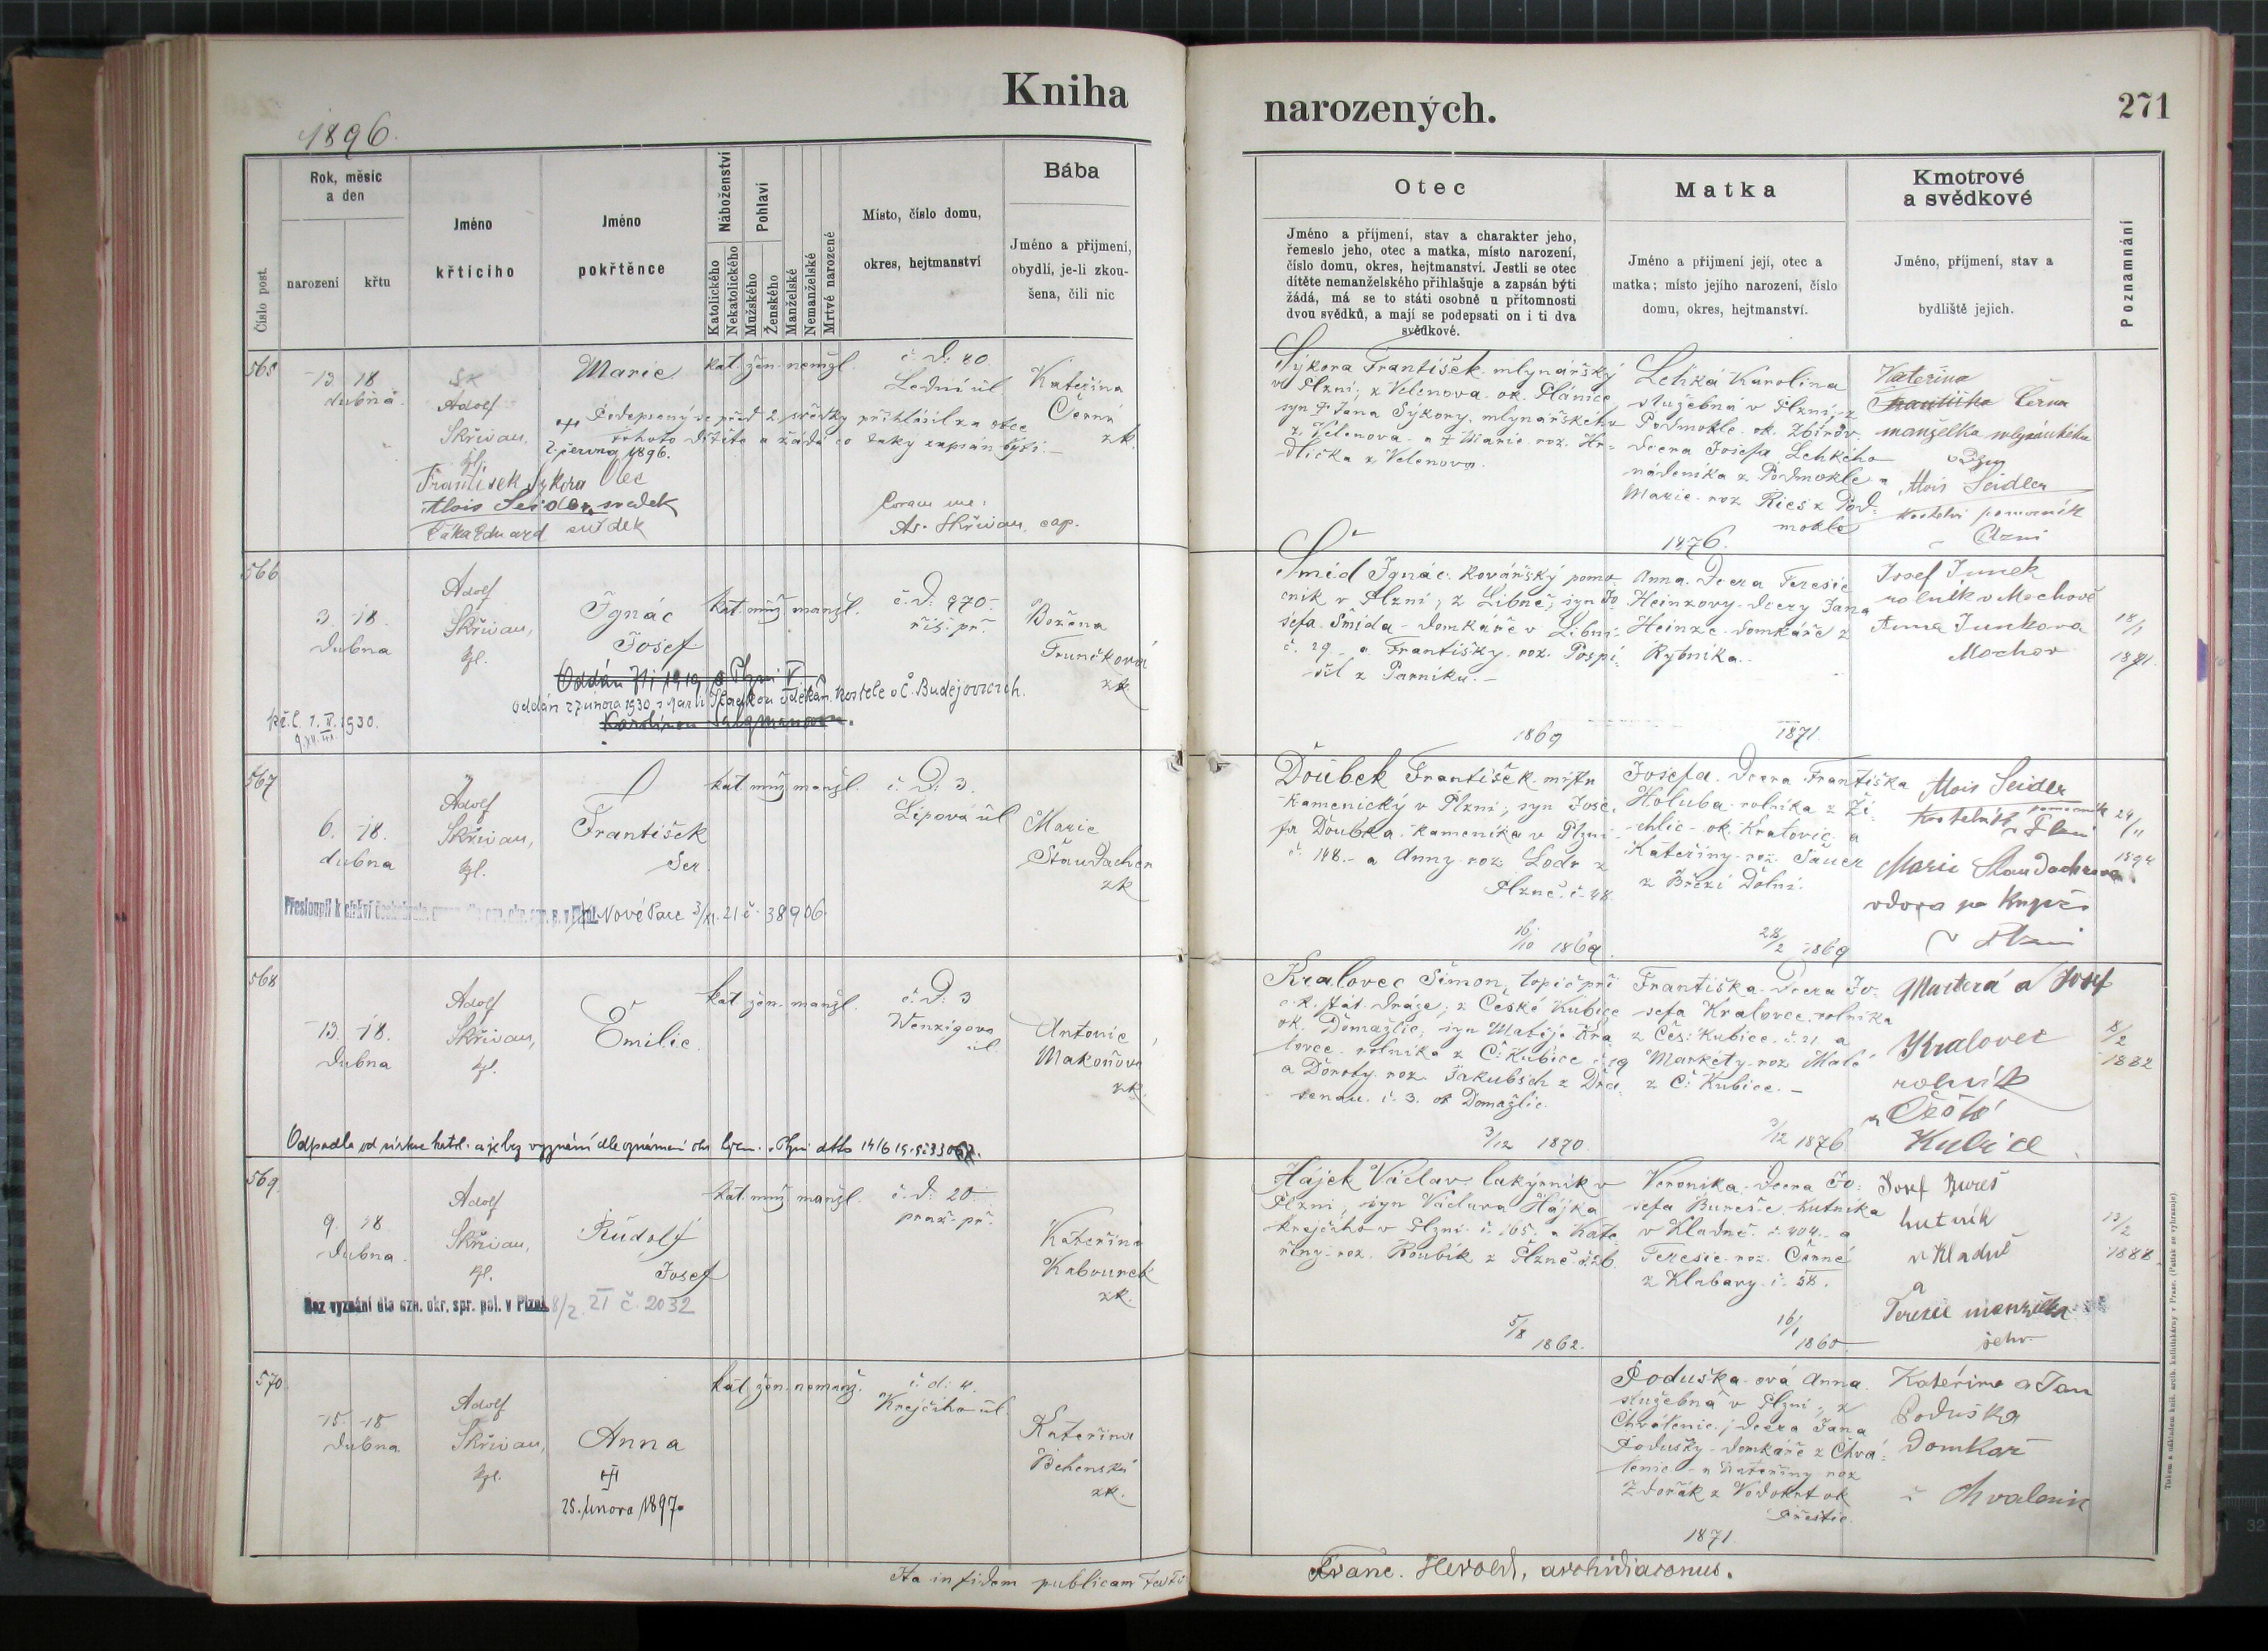 Kniha
1896.
Číslo post.
Rok, měsíc
a den
narození
křtu
Jméno
křticího
Jméno
pokřtěnce
Náboženství
Katolického
Nekatolického
Pohlaví
Mužského
Ženského
Manželské
Nemanželské
Mrtvě narozené
Místo, číslo domu,
okres, hejtmanství
Bába
Jméno a příjmení,
obydlí, je-li zkou-
šena, čili nic
565
13. 18
dubna
Adolf
Skřivan,
kpl.
Marie
kat. žen. nemžl.
č. D: 40
Lední úl.
Kateřina
Černá
zk.
Podepsaný se před 2 svědky přihlásil za otce
tohoto dítěte a žádá co taký zapsán býti.
2. června 1896.
František Sýkora Otec
Alois Seidler, svědek
Eduard svědek
Coram me:
Ad. Skřivan, cap.
566
3. 18.
Dubna
Adolf
Skřivan,
kpl.
Ignác
Josef
kat. muž. manžl.
č. D: 970
říš. př.
Božena
Trunčková
zk.
oddán 27 února 1930 s
kostele v Č. Budějovicích.
1930.
567
6. 18.
dubna
Adolf
Skřivan,
kpl.
František
Ser.
kat. muž. manžl.
č. D: 3.
Lipová úl
Marie
Staudacher
zk
Nové Pace 3/XI. 21 č. 38906.
568
13. 18.
Dubna
Adolf
Skřivan,
kpl.
Emilie
kat. žen. manžl.
č. D: 3
Wenzigova
úl.
Antonie
Makoňová
zk.
Odpadla od církve kath. a je bez vyznání dle oznámení
569
9. 18.
Dubna.
Adolf
Skřivan,
kpl.
Rudolf
Josef
kat. muž. manžl.
č. D: 20
praž. př.
Kateřina
Kabourek
zk.
Bez vyznání dle ozn. okr. spr. pol. v Plzni 8/2. 21 č. 2032
570
15. 18
Dubna
Adolf
Skřivan,
kpl.
Anna
25. února 1897.
kat. žen. nemanž.
č. d: 4.
Krejčího úl.
Kateřina
zk.
Ita in fidem publicam
narozených.
271
Otec
Jméno a příjmení, stav a charakter jeho,
řemeslo jeho, otec a matka, místo narození,
číslo domu, okres, hejtmanství. Jestli se otec
dítěte nemanželského přihlašuje a zapsán býti
žádá, má se to státi osobně u přítomnosti
dvou svědků, a mají se podepsati on i ti dva
svědkové.
Matka
Jméno a příjmení její, otec a
matka; místo jejího narození, číslo
domu, okres, hejtmanství.
Kmotrové
a svědkové
Jméno, příjmení, stav a
bydliště jejich.
Poznamnání
Sýkora František mlynářský
v Plzni; z Velenova ok. Plánice
syn † Jána Sýkory, mlynářského
z Velenova a † Marie roz. Hr-
dlička z Velenova.
Lehká Karolina
služebná v Plzni, z
Podmokle ok. Zbirov
dcera Josefa Lehkého
nádeníka z Podmokle a
Marie roz Ries z Pod-
mokle
1876.
Kateřina
Františka Černa
manželka
Alois Seidler
kostelní pomocník
v Plzni
Šmíd Ignác. kovářský pomo-
cník v Plzni; z Libně; syn Jo-
sefa Šmída domkáře v Libni
č. 29 a Františky roz. Pospí-
šil z Parníku.
1869
Anna. Dcera Teresie
Heinzovy dcery Jana
Heinze domkáře z
Rybníka.
1871
Josef Junek
rolník v Mochově
Anna Junkova
Mochov
18/1
1891.
Doubek František mistr
kamenický v Plzni; syn Jose-
fa Doubka kameníka v Plzni
č. 148. a Anny roz Lodr z
Plzně č. 48.
16/10 1869.
Josefa. Dcera Františka
Holuba rolníka z Ži-
chlic ok. Kralovic a
Kateřiny roz. Sauer
z Březí Dolní.
28/2 1869
Alois Seidler
kostelník pomocník
v Plzni
Marie Staudachrova
vdova po kupci
v Plzni
24/11
1894
Kralovec Šimon, topič při
c. k. stát. dráze; z České Kubice
ok. Domažlic, syn Matěje Kra-
lovce rolníka z Č: Kubice č. 19
a Doroty roz Jakubsch z
č. 3. ok Domažlic.
3/12 1870.
Františka Dcera Jo-
sefa Kralovce rolníka
z Čes: Kubice č. 21 a
Markéty roz Malé
z Č: Kubice.
3/12 1876
a Josef
Kralovec
rolník
z České
Kubice
8/2
1882
Hájek Václav lakýrník v
Plzni, syn Václava Hájka
krejčího v Plzni č. 165. a Kate-
řiny roz. Roubík z Plzně č. 26.
5/8 1862.
Veronika Dcera Jo-
sefa Bureše hutníka
v Kladně č. 404 a
Teresie roz. Černé
z Klabavy č. 58.
16/1
1860
Josef Bureš
hutník
v Kladně
a
Terezie manželka
jeho.
13/2
1888.
Poduška-ová Anna
služebná v Plzni; z
Chválenic; dcera Jana
Podušky domkáře z Chvá-
lenic a Kateřiny roz
Zdvořák z Vodokrt ok
Přestic.
1871.
Kateřina a Jan
Poduška
Domkář
z Chvalenic
Franc. Herold, archidiaconus.